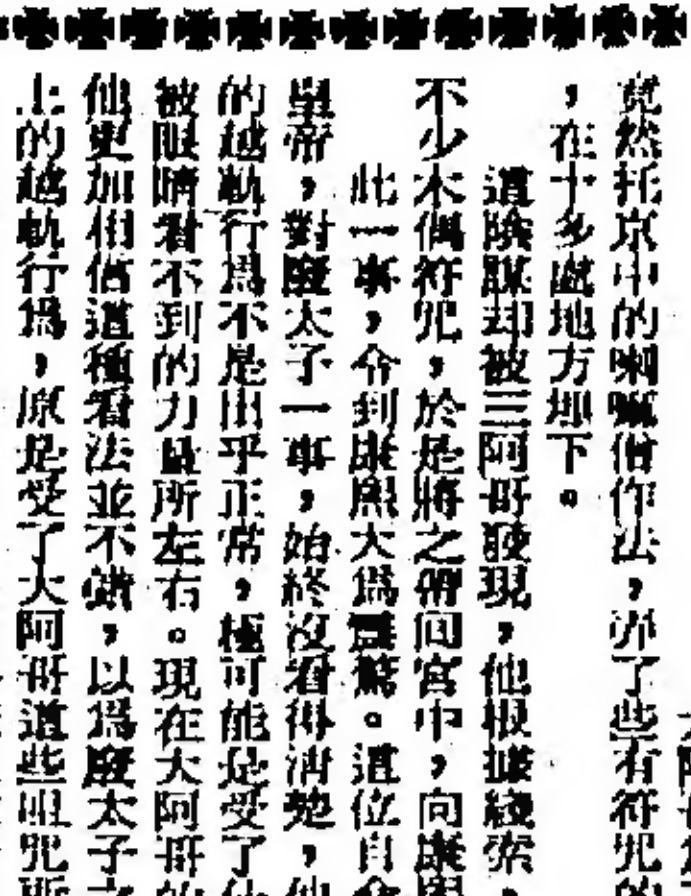 竟然托京中的喇嘛僧作法，弄了些有符咒的
，在十多處地方埋下。
這陰謀却被三阿哥發現，他根據綫索，
不少木偶符咒，於是將之帶回宮中，向康熙
此一事，令到康熙大為震驚。這位自命
皇帝，對廢太子一事，始終沒看得清楚，他
的越軌行為不是出乎正常，極可能是受了
被眼睛看不到的力量所左右。現在大阿哥的
他更加相信這種看法並不錯，以為廢太子
上的越軌行為，原是受了大阿哥這些